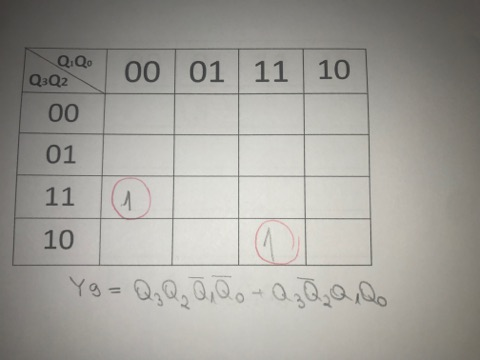 Q₁Q₀
Q₃Q₂ 00 01 11 10
00
01
11 1
10 1
Y9 = Q₃Q₂Q̅₁Q̅₀ + Q₃Q̅₂Q₁Q₀